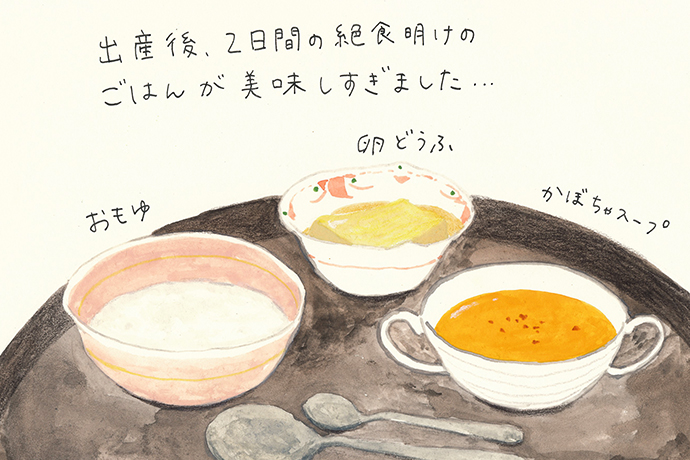 出産後、2日間の絶食明けの
ごはんが美味しすぎました...
卵どうふ
おもゆ
かぼちゃスープ